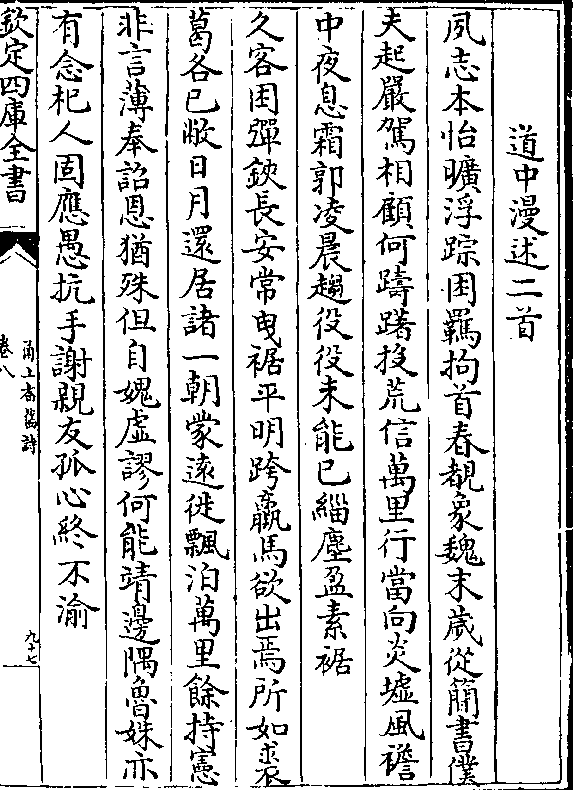 道中漫述二首
夙志本怡曠浮踪困羈拘首春覩象魏末歲從簡書僕
夫起嚴駕相顧何躊躇投荒信萬里行當向炎墟風襜
中夜息霜郭凌晨趨役役未能已緇塵盈素裾
久客困彈鋏長安常曳裾平明跨羸馬欲出焉所如裘
葛各已敝日月還居諸一朝蒙遠徙飄泊萬里餘持憲
非言薄奉詔恩猶殊但自媿虛謬何能靖邊隅魯姝亦
有念杞人固應愚抗手謝親友孤心終不渝
欽定四庫全書
甬上耆舊詩
卷八
九十七